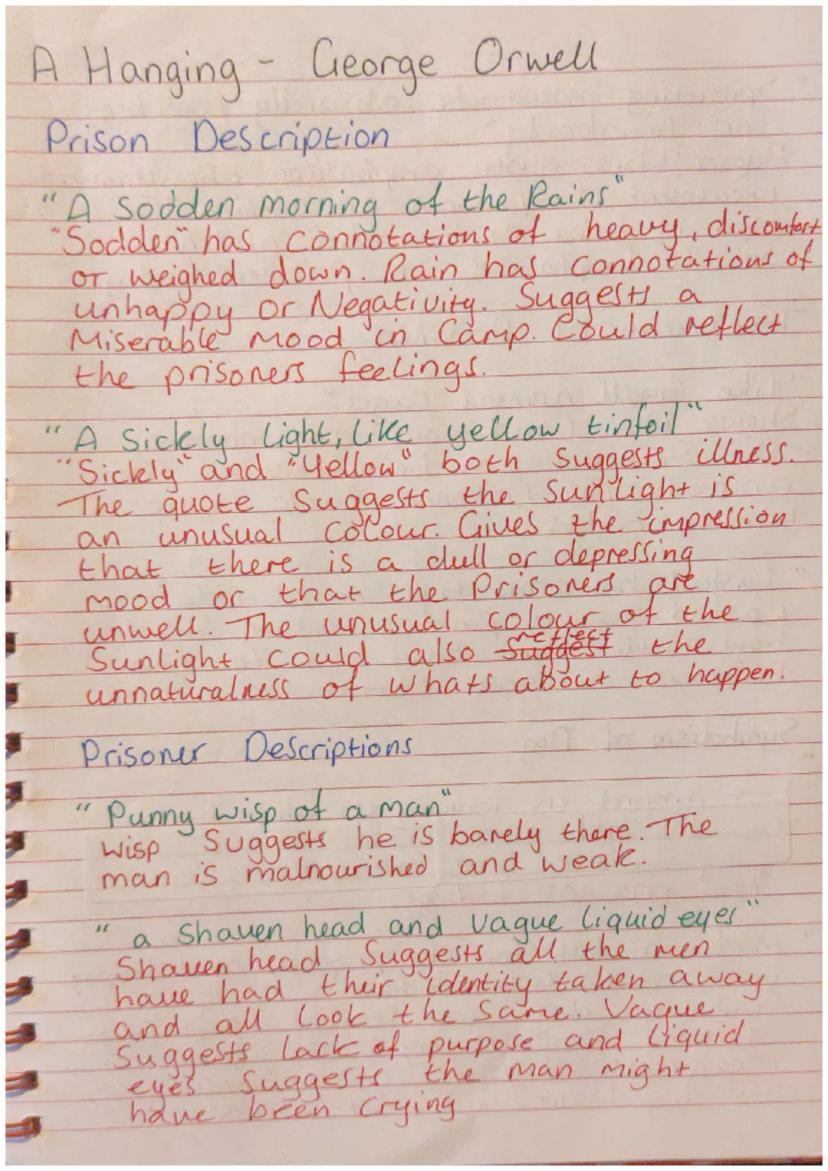 A Hanging - George Orwell
Prison Description
"A Sodden morning of the Rains"
"Sodden" has connotations of heavy, discomfort
or weighed down. Rain has connotations of
unhappy or Negativity. Suggests a
Miserable Mood in Camp. Could reflect
the prisoners feelings.
"A Sickly light, like yellow tinfoil"
"Sickly" and "Yellow" both Suggests illness.
The quote Suggests the Sunlight is
an unusual colour. Gives the impression
that there is a dull or depressing
mood or that the Prisoners are
unwell. The unusual colour of the
reflect
Sunlight could also Suggest the
unnaturalness of whats about to happen.
Prisoner Descriptions
"Punny wisp of a man"
Wisp Suggests he is barely there. The
man is malnourished and weak.
"a Shaven head and vague liquid eyes"
Shaven head Suggests all the men
have had their identity taken away
and all look the Same. Vague
Suggests lack of purpose and liquid
eyes Suggests the man might
have been crying